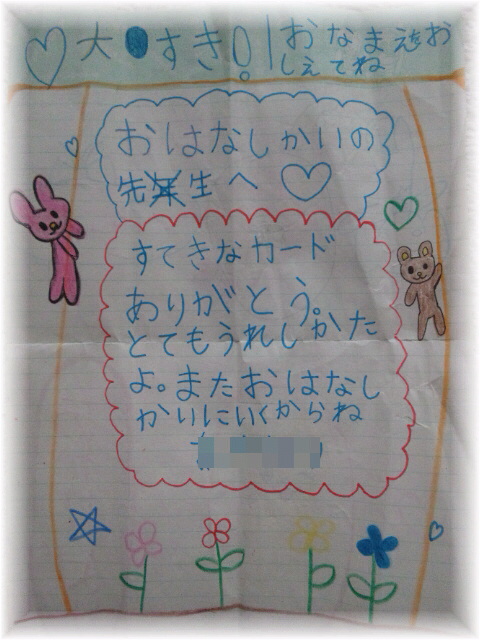 大●すき!
おなまえをお
しえてね
おはなしかいの
先生へ
すてきなカード
ありがとう。
とてもうれしかた
よ。またおはなし
かいにいくからね